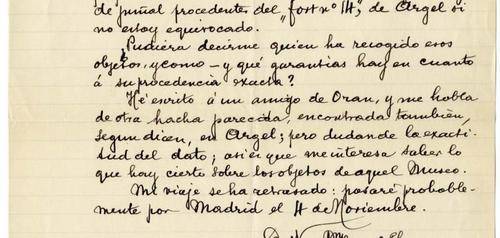 de puñal procedentes del "fort nº 14", de Argel si
no estoy equivocado.
¿Pudiera decirme quien ha recogido esos
objetos, y como – y qué garantias hay en cuanto
á su procedencia exacta?
Hé escrito á un amigo de Oran, y me habla
de otra hacha parecida, encontrada tambien,
segun dicen, en Argel; pero dudan de la exacti-
tud del dato; asi en que me interesa saber lo
que hay cierto sobre los objetos de aquel Museo.
Mi viaje se ha retrasado: pasaré probable-
mente por Madrid el 4 de Noviembre.